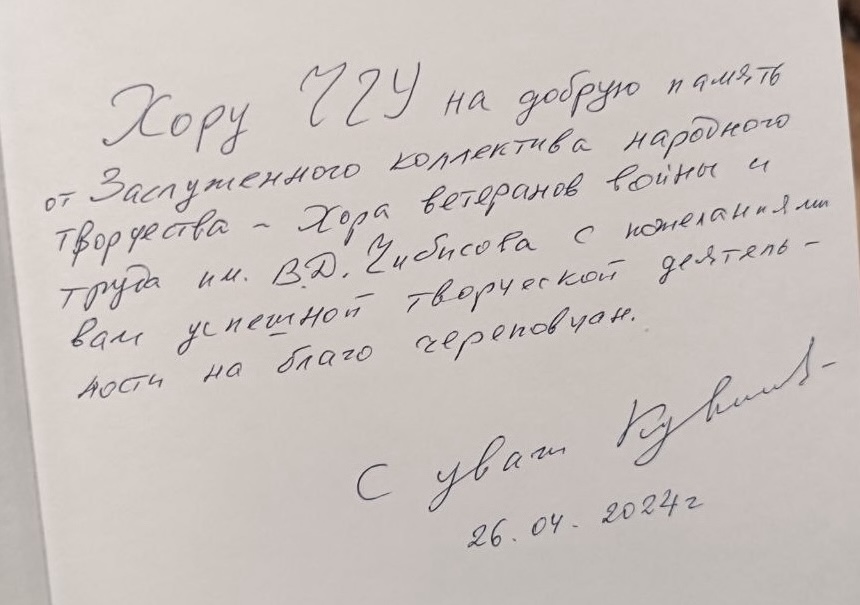 Хору ЧГУ на добрую память
от Заслуженного коллектива народного
творчества - Хора ветеранов войны и
труда им. В.Д. Чибисова с пожеланиями
вам успешной творческой деятель-
ности на благо череповчан.
С уваж
26.04.2024г